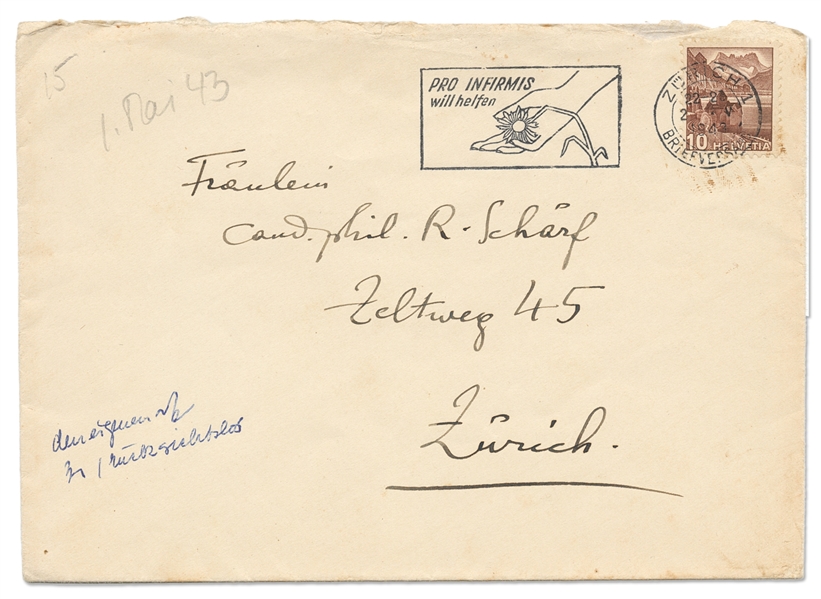 15
1. Mai 43
PRO INFIRMIS
will helfen
ZÜRICH 1
BRIEFVERSAND
10 HELVETIA
Fräulein
cand. phil. R. Schärf
Zeltweg 45
Zürich.
rücksichtslos